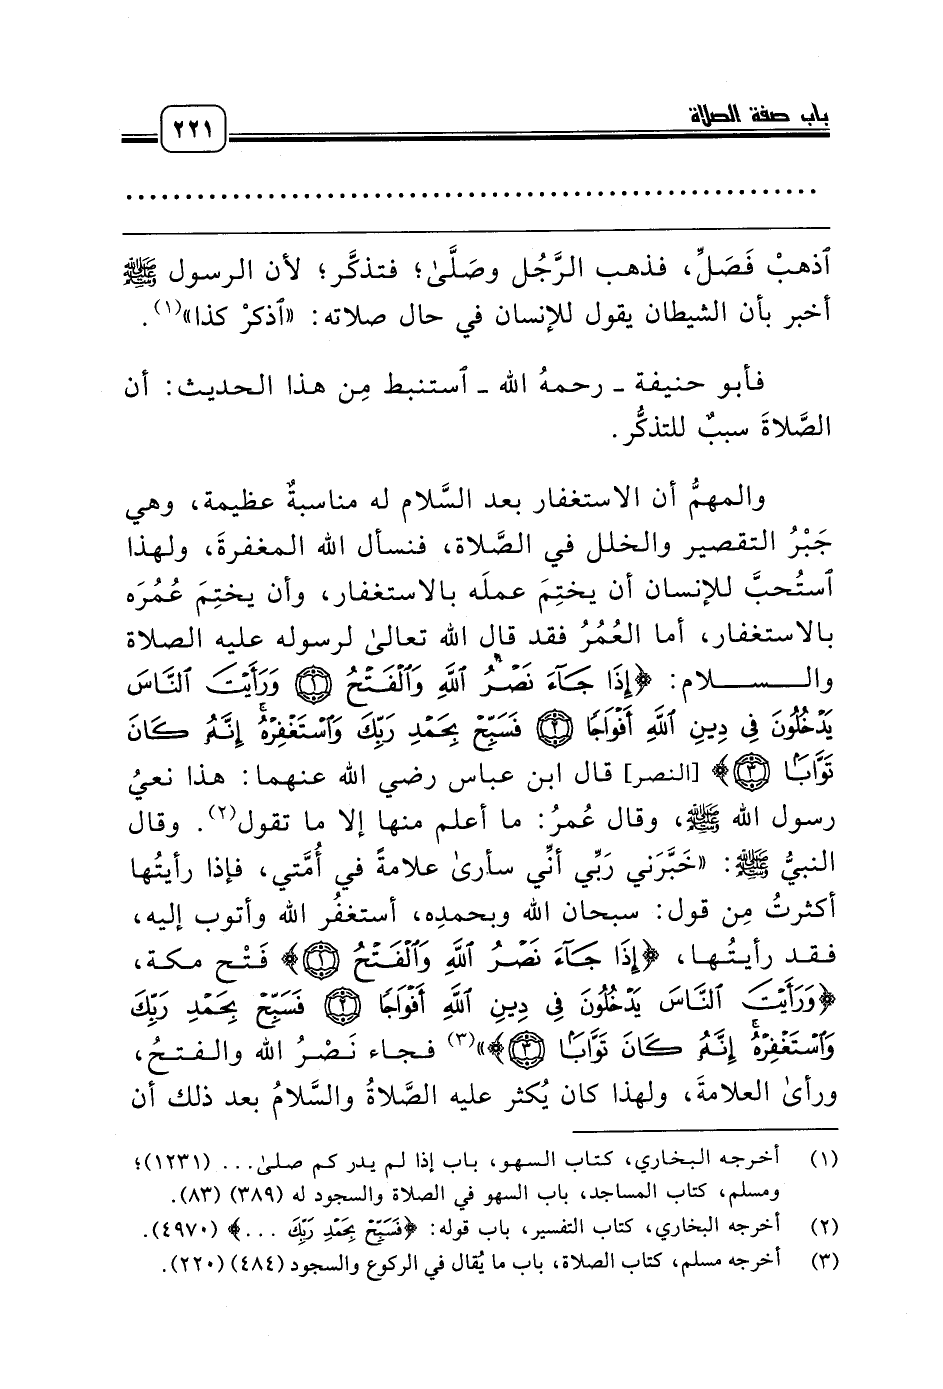 باب صفة الصلاة
٢٢١
ٱذهبْ فَصَلِّ، فذهب الرَّجُل وصَلَّىٰ؛ فتذكَّر؛ لأن الرسول ﷺ
أخبر بأن الشيطان يقول للإنسان في حال صلاته: «ٱذكرْ كذا»(١).
فأبو حنيفة ـ رحمهُ الله ـ ٱستنبط مِن هذا الحديث: أن
الصَّلاةَ سببٌ للتذكُّر.
والمهمُّ أن الاستغفار بعد السَّلام له مناسبةٌ عظيمة، وهي
جَبْرُ التقصير والخلل في الصَّلاة، فنسأل الله المغفرةَ، ولهذا
ٱستُحبَّ للإنسان أن يختِمَ عملَه بالاستغفار، وأن يختِمَ عُمُرَه
بالاستغفار، أما العُمُرُ فقد قال الله تعالىٰ لرسوله عليه الصلاة
والـسـلام: ﴿إِذَا جَآءَ نَصۡرُ ٱللَّهِ وَٱلۡفَتۡحُ ۝١ وَرَأَيۡتَ ٱلنَّاسَ
يَدۡخُلُونَ فِي دِينِ ٱللَّهِ أَفۡوَاجٗا ۝٢ فَسَبِّحۡ بِحَمۡدِ رَبِّكَ وَٱسۡتَغۡفِرۡهُۚ إِنَّهُۥ كَانَ
تَوَّابَۢا ۝٣﴾ [النصر] قال ابن عباس رضي الله عنهما: هذا نعيُ
رسول الله ﷺ، وقال عُمرُ: ما أعلم منها إلا ما تقول(٢). وقال
النبيُّ ﷺ: «خَبَّرَني رَبِّي أنِّي سأرىٰ علامةً في أُمَّتي، فإذا رأيتُها
أكثرتُ مِن قول: سبحان الله وبحمدِه، أستغفُر الله وأتوب إليه،
فقد رأيتُها، ﴿إِذَا جَآءَ نَصۡرُ ٱللَّهِ وَٱلۡفَتۡحُ ۝١﴾ فَتْح مكة،
﴿وَرَأَيۡتَ ٱلنَّاسَ يَدۡخُلُونَ فِي دِينِ ٱللَّهِ أَفۡوَاجٗا ۝٢ فَسَبِّحۡ بِحَمۡدِ رَبِّكَ
وَٱسۡتَغۡفِرۡهُۚ إِنَّهُۥ كَانَ تَوَّابَۢا ۝٣﴾»(٣) فجاء نَصْرُ الله والفتحُ،
ورأىٰ العلامةَ، ولهذا كان يُكثر عليه الصَّلاةُ والسَّلامُ بعد ذلك أن
(١) أخرجه البخاري، كتاب السهو، باب إذا لم يدر كم صلىٰ... (١٢٣١)؛
ومسلم، كتاب المساجد، باب السهو في الصلاة والسجود له (٣٨٩) (٨٣).
(٢) أخرجه البخاري، كتاب التفسير، باب قوله: ﴿فَسَبِّحۡ بِحَمۡدِ رَبِّكَ ...﴾ (٤٩٧٠).
(٣) أخرجه مسلم، كتاب الصلاة، باب ما يُقال في الركوع والسجود (٤٨٤) (٢٢٠).